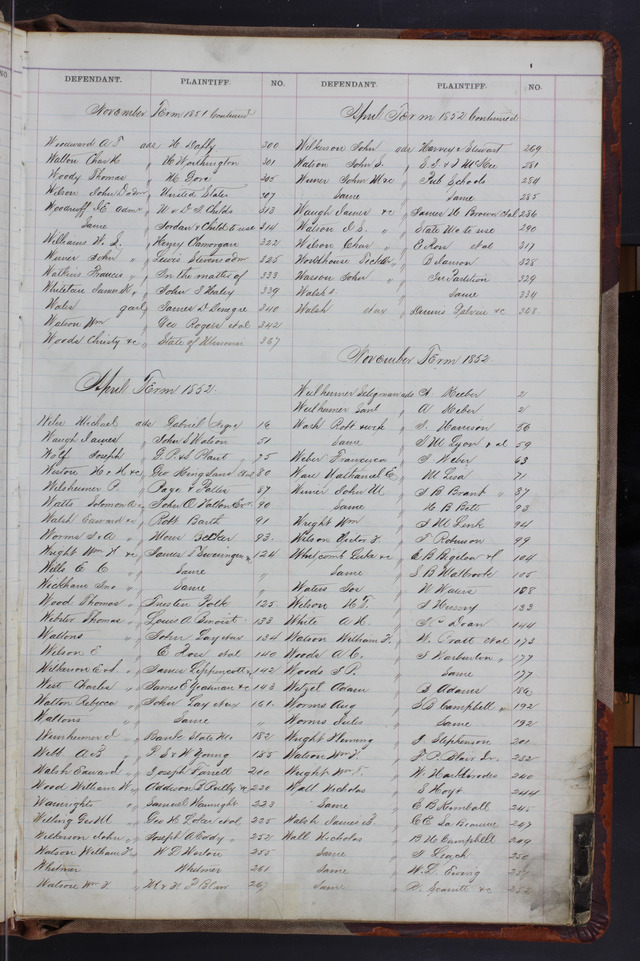 DEFENDANT. PLAINTIFF. NO.
November Term 1851 Continued
Woodward A T ads H Dafly 300
Walton Chas H " H Worthington 301
Woody Thomas " H Gore 305
Wilson John D admr " United States 307
Woodruff I E admr " W & D S Childs 313
Same " Jordan & Child to use 314
Williams H. S. " Henry Clamorgan 322
Weaver John " Lewis admr 325
Watkins Francis " In the matter of 333
Whitelaw James H " John S Healey 339
Wates garl " James D 340
Watson Wm " Geo Rogers et al 342
Woods Christy & c " State of Missouri 367
April Term 1852.
Wise Michael ads Gabriel 16
Waugh James " John S Watson 51
Wolf Joseph " G. P. & S Plant " 75
Weston H & H & c " Geo Kingsland et al 80
Wilsheimer P. " Page & Potter 87
Watts Solomon " John A Exr 90
Walsh Edward & c " Robt Barth 91
Worms S A " Becker 93
Wright Wm H & c " James S " 124
Wills E C " Same "
Wickham Jno " Same "
Wood Thomas " Tresten Polk 125
Webster Thomas " Louis A Benoist 133
Waltons " John Lay et ux 134
Wilson E " C et al 140
Wilkinson E & S. " James Lippincott 142
West Charles " James E Yeatman & c 143
Walton Rebecca " John Lay et ux 161
Waltons " Same "
" Bank State Mo 182
Webb A B " T S & W Young 185
Walsh Edward " Joseph Farrell 200
Wood William W " Addison & c 220
Wainrights " Samuel Wainright 223
Welling Geo M " Geo H et al 225
Wilkerson John " Joseph A Cody " 252
Watson William H " W D 255
Whitmer " Whitmer 261
Watson Wm H " M & F P Blair 267
DEFENDANT. PLAINTIFF. NO.
April Term 1852 Continued
Wilkerson John ads Harvey Stewart 269
Watson John S. " S. S. & J McKee 281
Wimer John M & c " Pub Schools 284
Same " Same 285
Waugh James & c " James H Brown et al 286
Watson D. S. " State Mo to use 290
Wilson Char " E Ron et al 317
" B 328
Wasson John " In Partition 329
Walsh S " Same 334
Walsh et ux " Dennis Galvin & c 368
November Term 1852.
Weilheimer Seligman ads A Keeber 2
Weilheimer Saml " A Heber 2
Wash Robt & wife " S. Harrison 56
Same " S M Lyon et al 59
Weber Francisca " S Weber 63
Ware Nathaniel E. " M Lisa 71
Wimer John M " S B Brant " 87
Same " H B Belt 93
Wright Wm " S M Link 94
Wilson Hector F. " F Robinson 99
Whitcomb Luke & c " E B Bigelow & c 104
Same " S B Wallbrook 105
Waters Jos " N Waters 128
Wilson H T. " S Hussey 133
White A H. " S Doan 144
Watson William F. " W. Pratt et al 173
Woods A C. " S Warburton " 177
Woods S P. " Same 177
Wetzel Adam " B Adams 186
Worms Aug " S B Campbell " 192
Worms Jules " Same 192
Wright Fleming " J Stephenson 201
Watson Wm F. " F P Blair Jr. 232
Wright Wm F. " W. 240
Wall Nicholas " E Hoyt 244
Same " E B Kimball 245
Walsh James B. " C C La Beaume 247
Wall Nicholas " B H Campbell 249
Same " S Leach 250
Same " W. D. Ewing 251
Same " D. & c 252